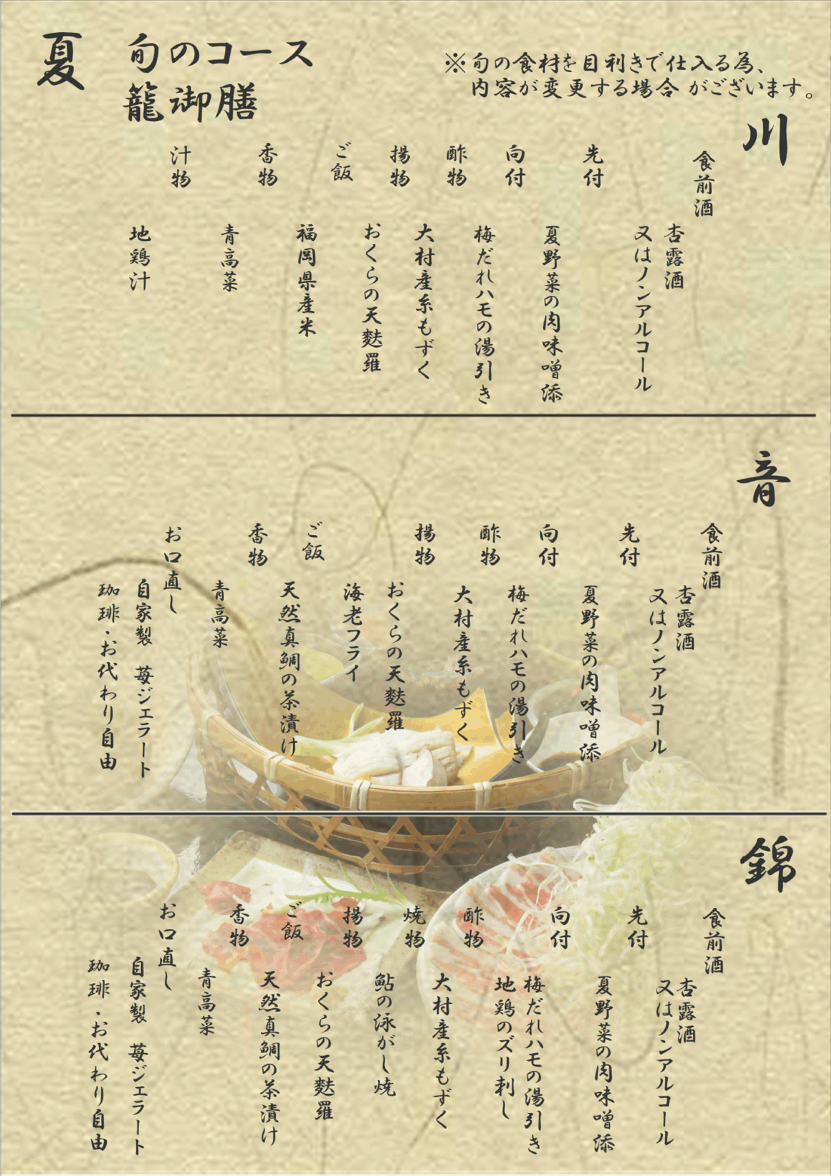 夏
旬のコース
籠御膳
※旬の食材を目利きで仕入る為、
内容が変更する場合 がございます。
川
食前酒
杏露酒
又はノンアルコール
先付
夏野菜の肉味噌添
向付
梅だれハモの湯引き
酢物
大村産糸もずく
揚物
おくらの天麩羅
ご飯
福岡県産米
香物
青高菜
汁物
地鶏汁
音
食前酒
杏露酒
又はノンアルコール
先付
夏野菜の肉味噌添
向付
梅だれハモの湯引き
酢物
大村産糸もずく
揚物
おくらの天麩羅
海老フライ
ご飯
天然真鯛の茶漬け
香物
青高菜
お口直し
自家製 苺ジェラート
珈琲・お代わり自由
錦
食前酒
杏露酒
又はノンアルコール
先付
夏野菜の肉味噌添
向付
梅だれハモの湯引き
地鶏のズリ刺し
酢物
大村産糸もずく
焼物
鮎の泳がし焼
揚物
おくらの天麩羅
ご飯
天然真鯛の茶漬け
香物
青高菜
お口直し
自家製 苺ジェラート
珈琲・お代わり自由